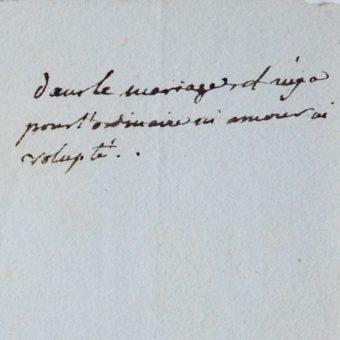 dans le mariage, il n'y a
pour l'ordinaire ni amour ni
volupté..